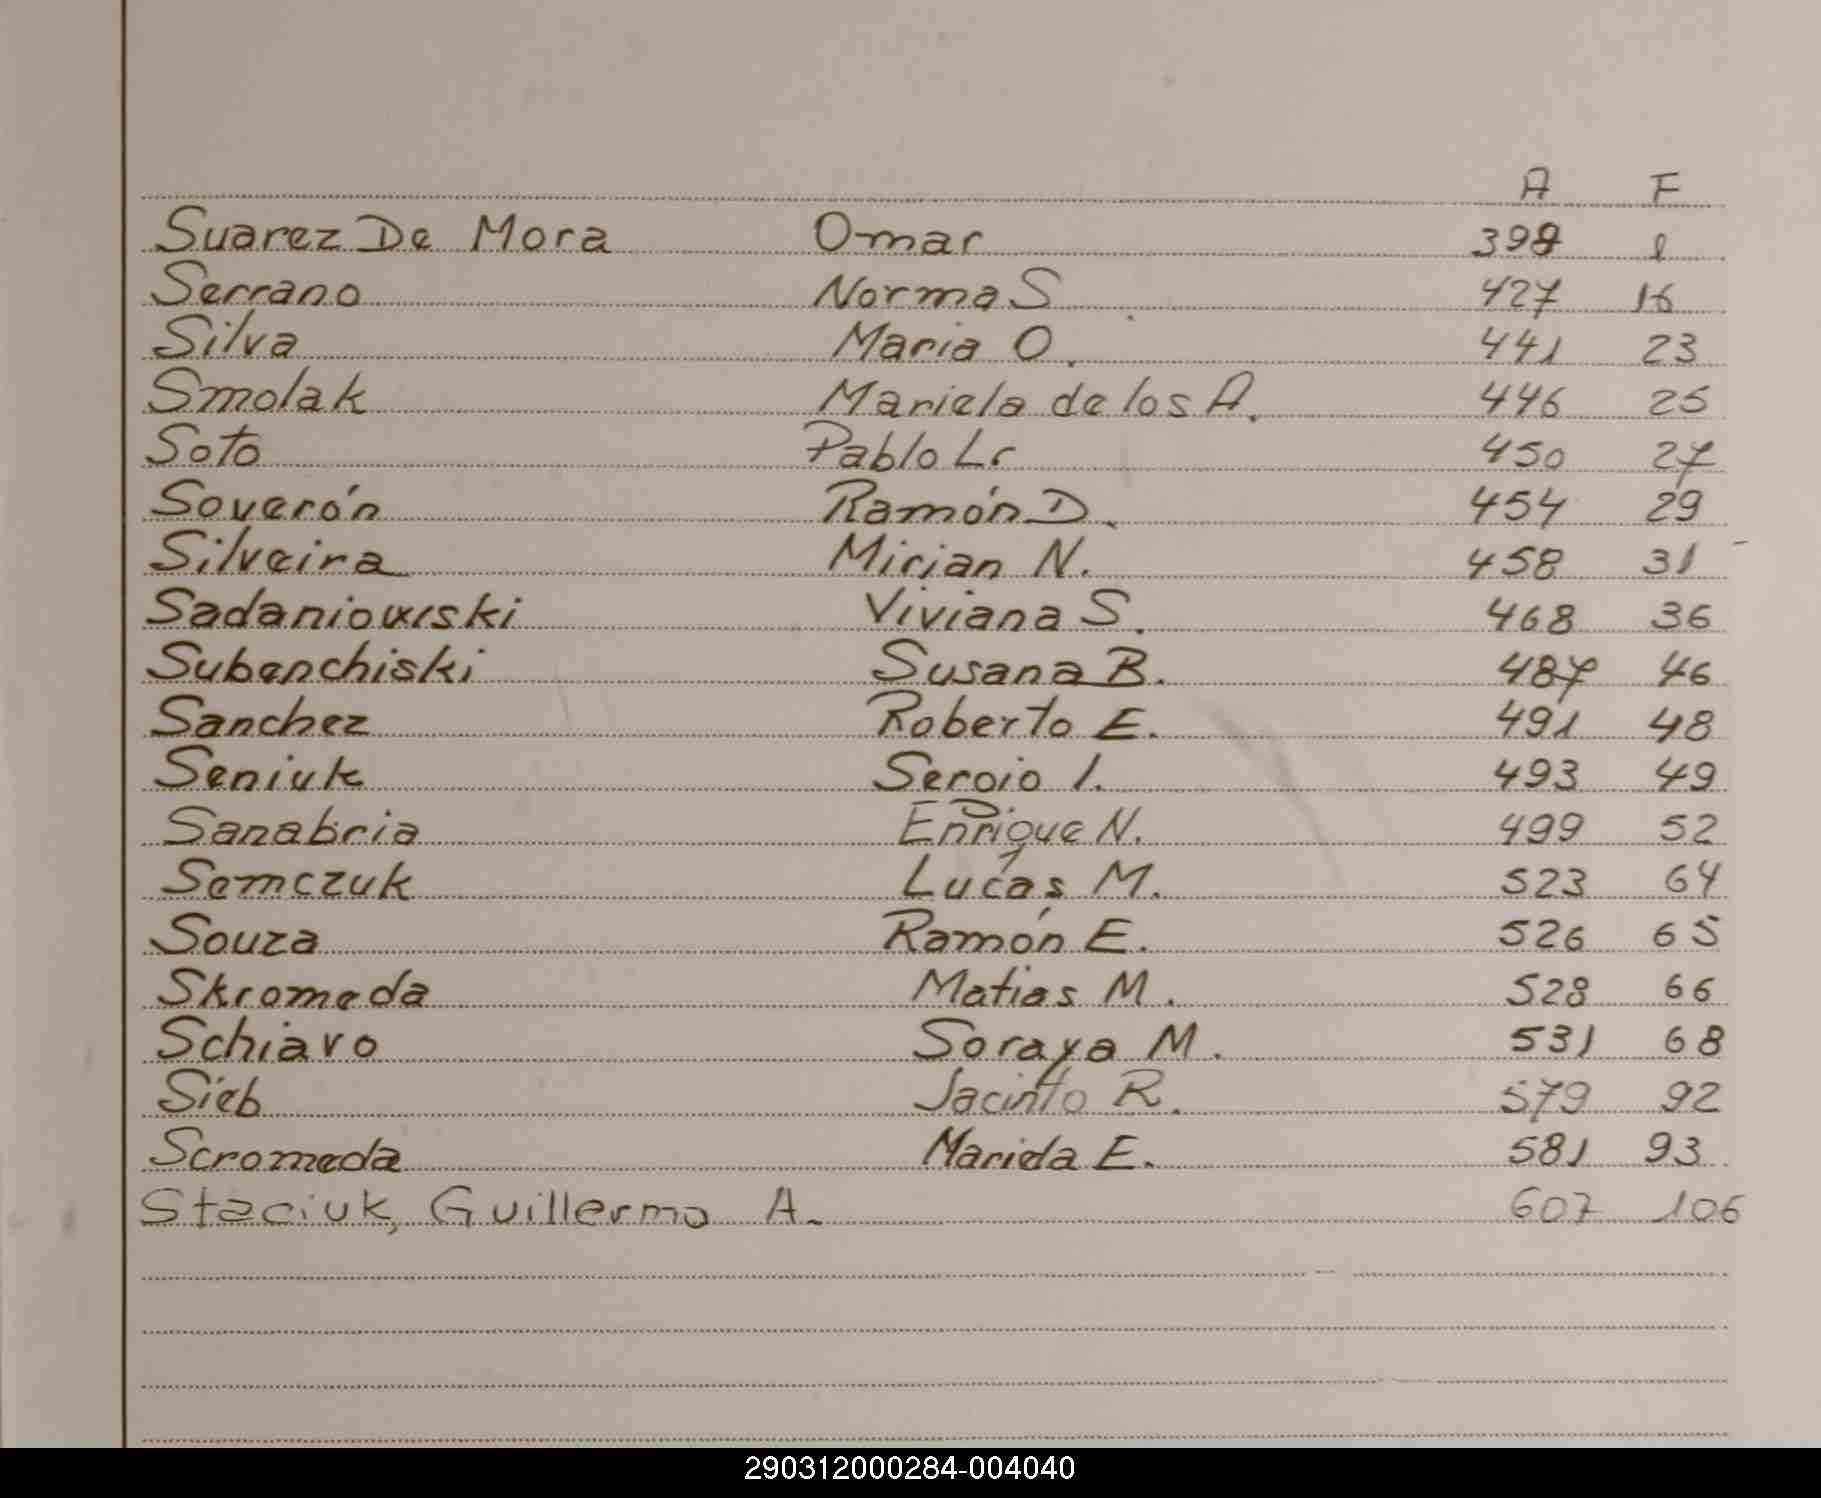 A F
Suarez De Mora Omar 398 1
Serrano Norma S 427 16
Silva Maria O. 441 23
Smolak Mariela de los A. 446 25
Soto Pablo L. 450 27
Soverón Ramón D. 454 29
Silveira Mirian N. 458 31
Sadaniowski Viviana S. 468 36
Subenchiski Susana B. 487 46
Sanchez Roberto E. 491 48
Seniuk Sergio I. 493 49
Sanabria Enrique N. 499 52
Semczuk Lucas M. 523 64
Souza Ramón E. 526 65
Skromeda Matias M. 528 66
Schiavo Soraya M. 531 68
Sieb Jacinto R. 579 92
Scromeda Mariela E. 581 93
Staciuk, Guillermo A. 607 106
290312000284-004040